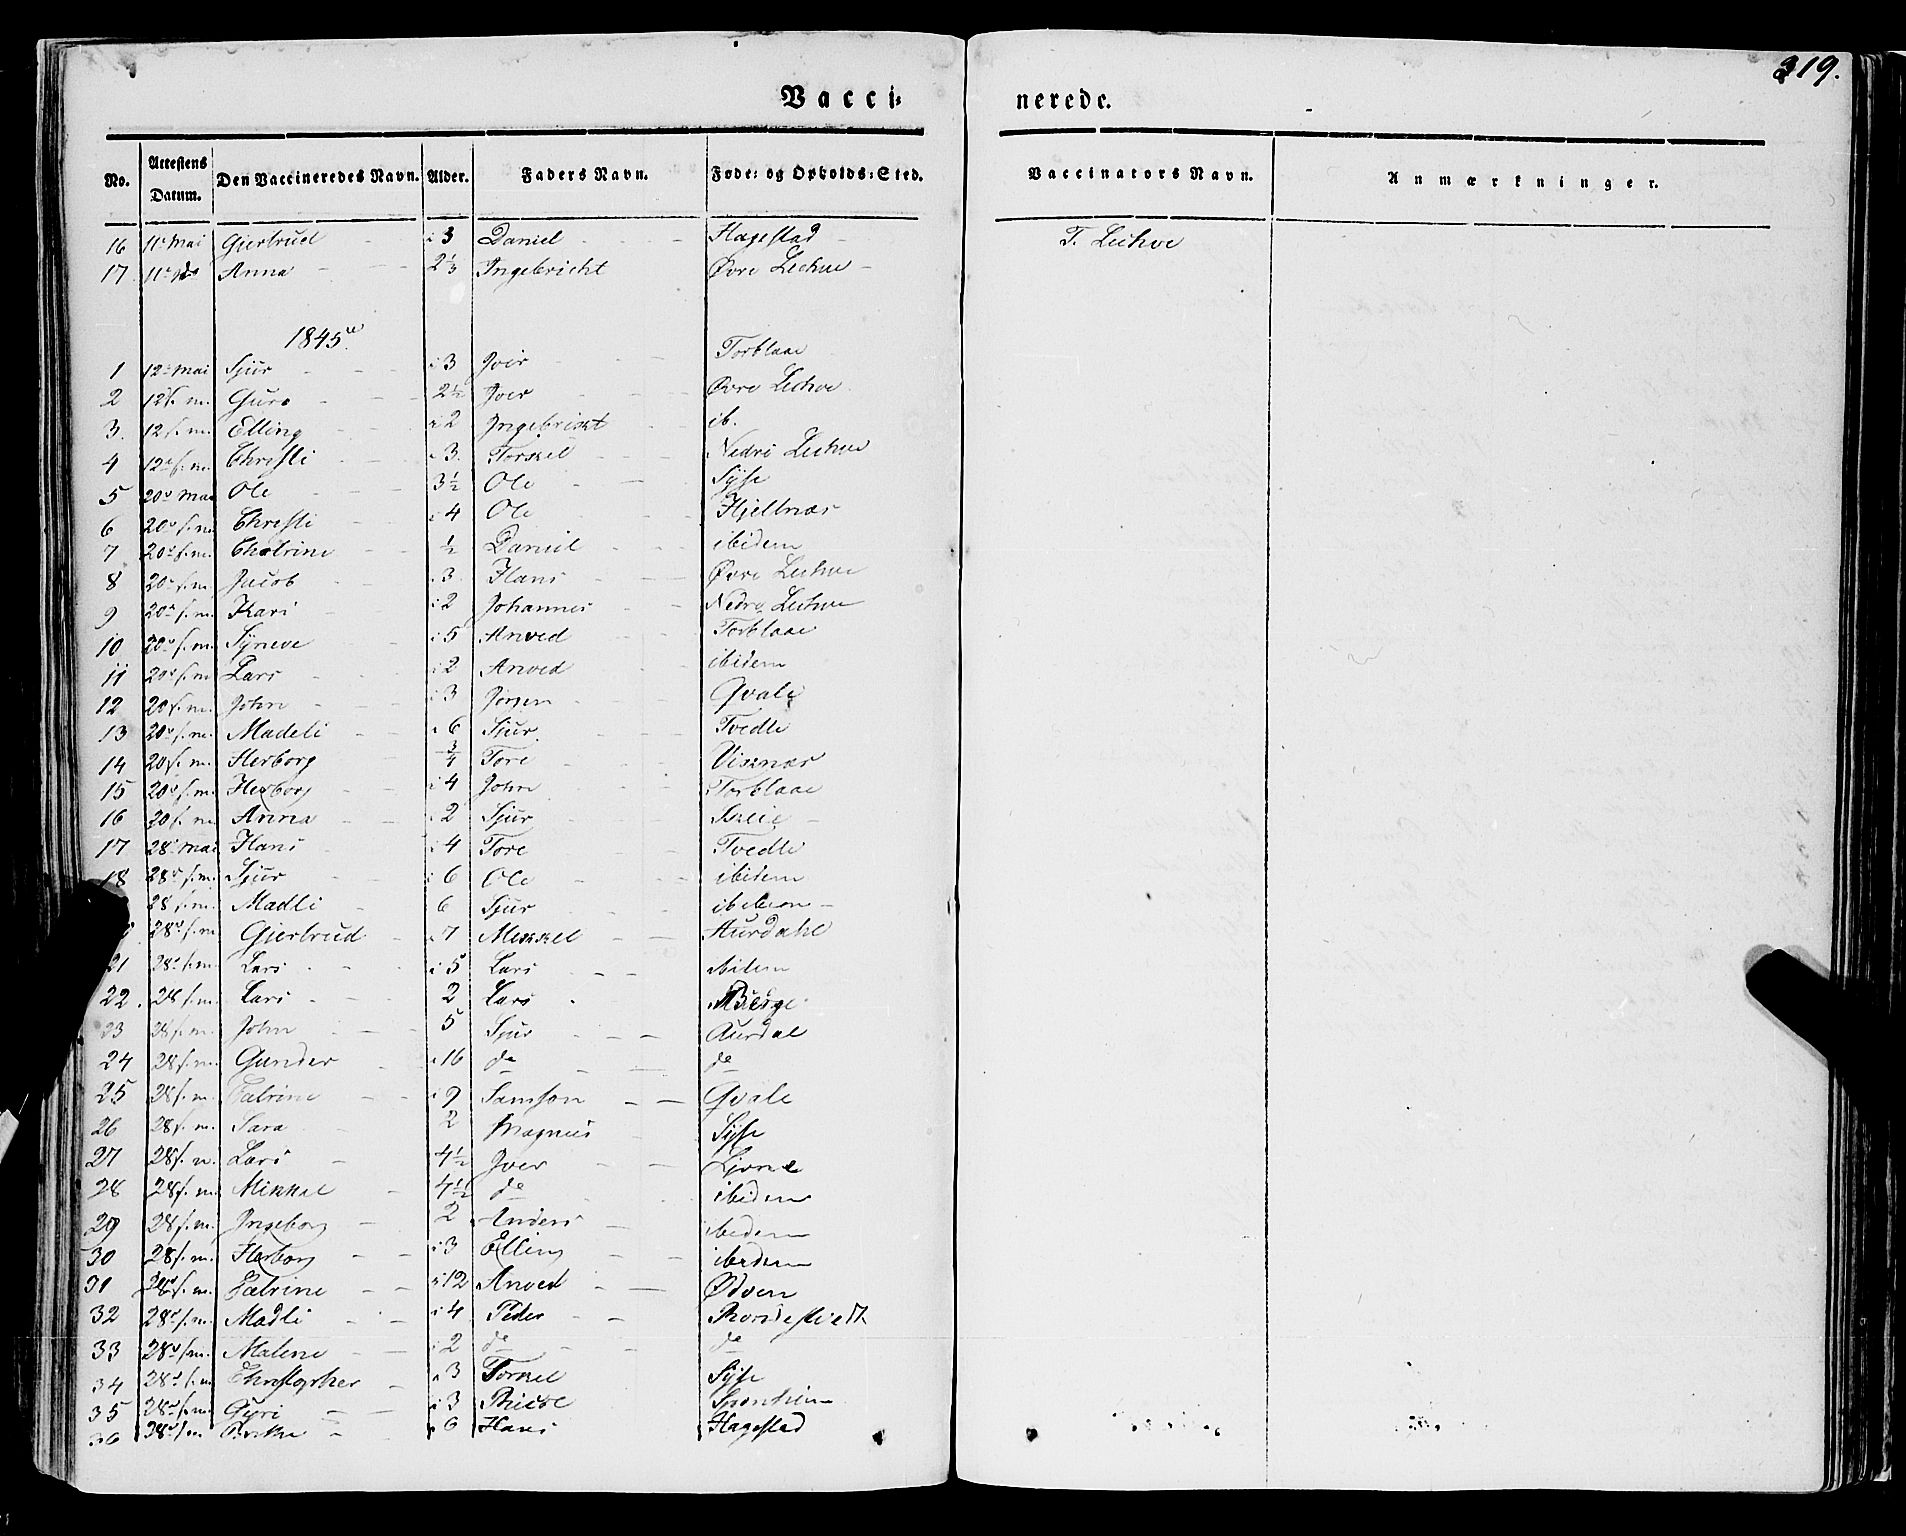 319.
Vacci: nerede.
No. Attestens Datum. Den Vaccineredes Navn. Alder. Faders Navn. Føde: og Opholds:Sted. Vaccinators Navn. Anmærkninger.
16 11e Mai Gjertrud i 3 Daniel Hagestad T. Lechve
17 11e do Anna 2 1/3 Ingebricht Øvre Lechve
1845
1 12e Mai Sjur i 3 Iver Torblaae
2 12 s. m. Guro 2 1/2 Iver Øvre Lechve
3. 12 s. m. Elling i 2 Ingebrikt ib.
4 12e s. m. Christi i 3. Torkel Nedre Lechve
5 20e Mai Ole 3 1/2 Ole Syse
6 20e s. m. Christi i 4 Ole Hjeltnæs
7 20e s. m. Chatrine 1/2 Daniel ibidem
8 20e s. m. Jacob i 3. Hans Øvre Lechve
9 20e s. m. Kari i 2 Johannes Nedre Lechve
10 20e s. m. Syneve i 5 Anved Torblaae
11 20e s. m Lars i 2 Anved ibidem
12 20 s. m. John i 3 Jørgen Qvale
13 20e s. m. Madeli i 6 Sjur Tvedte
14 20 s. m. Herborg 3/4 Tore Viknæs
15 20e s. m. Herborg i 4 John Torblaae
16 20 s. m. Anna i 2 Sjur Skeie
17 28e Mai Hans i 4 Tore Tvedte
18 28e s. m. Sjur i 6 Ole ibidem
28 s. m. Madli 6 Sjur ibidem
28e s. m Gjertrud i 7 Mikkel Aurdahl
21 28e s. m. Lars i 5 Lars ibidem
22. 28 s. m. Lars 2 Lars Berge
23 28 s. m. John 5 Sjur Aurdal
24 28 s. m. Gunder i 16 do do
25 28 s. m. Catrine i 9 Samson Qvale
26 28 s. m. Sara 2 Magnus Syse
27 28 s. m. Lars 4 1/2 Iver Ljone
28 28 s. m. Mikkel 4 1/2 do ibidem
29 28 s. m. Ingeborg 2 Anders ibidem
30 28 s. m. Herborg i 3 Elling ibidem
31 28e s. m. Catrine i 12 Anved Ødven
32 28e s. m. Madli i 4 Peder
33 28e s. m. Malene i 2 do do
34 28e s. m Christopher i 3 Torkel Syse
35 28e s. m. Gyri i 3
36 28e s. m i 6 Hans Hagestad